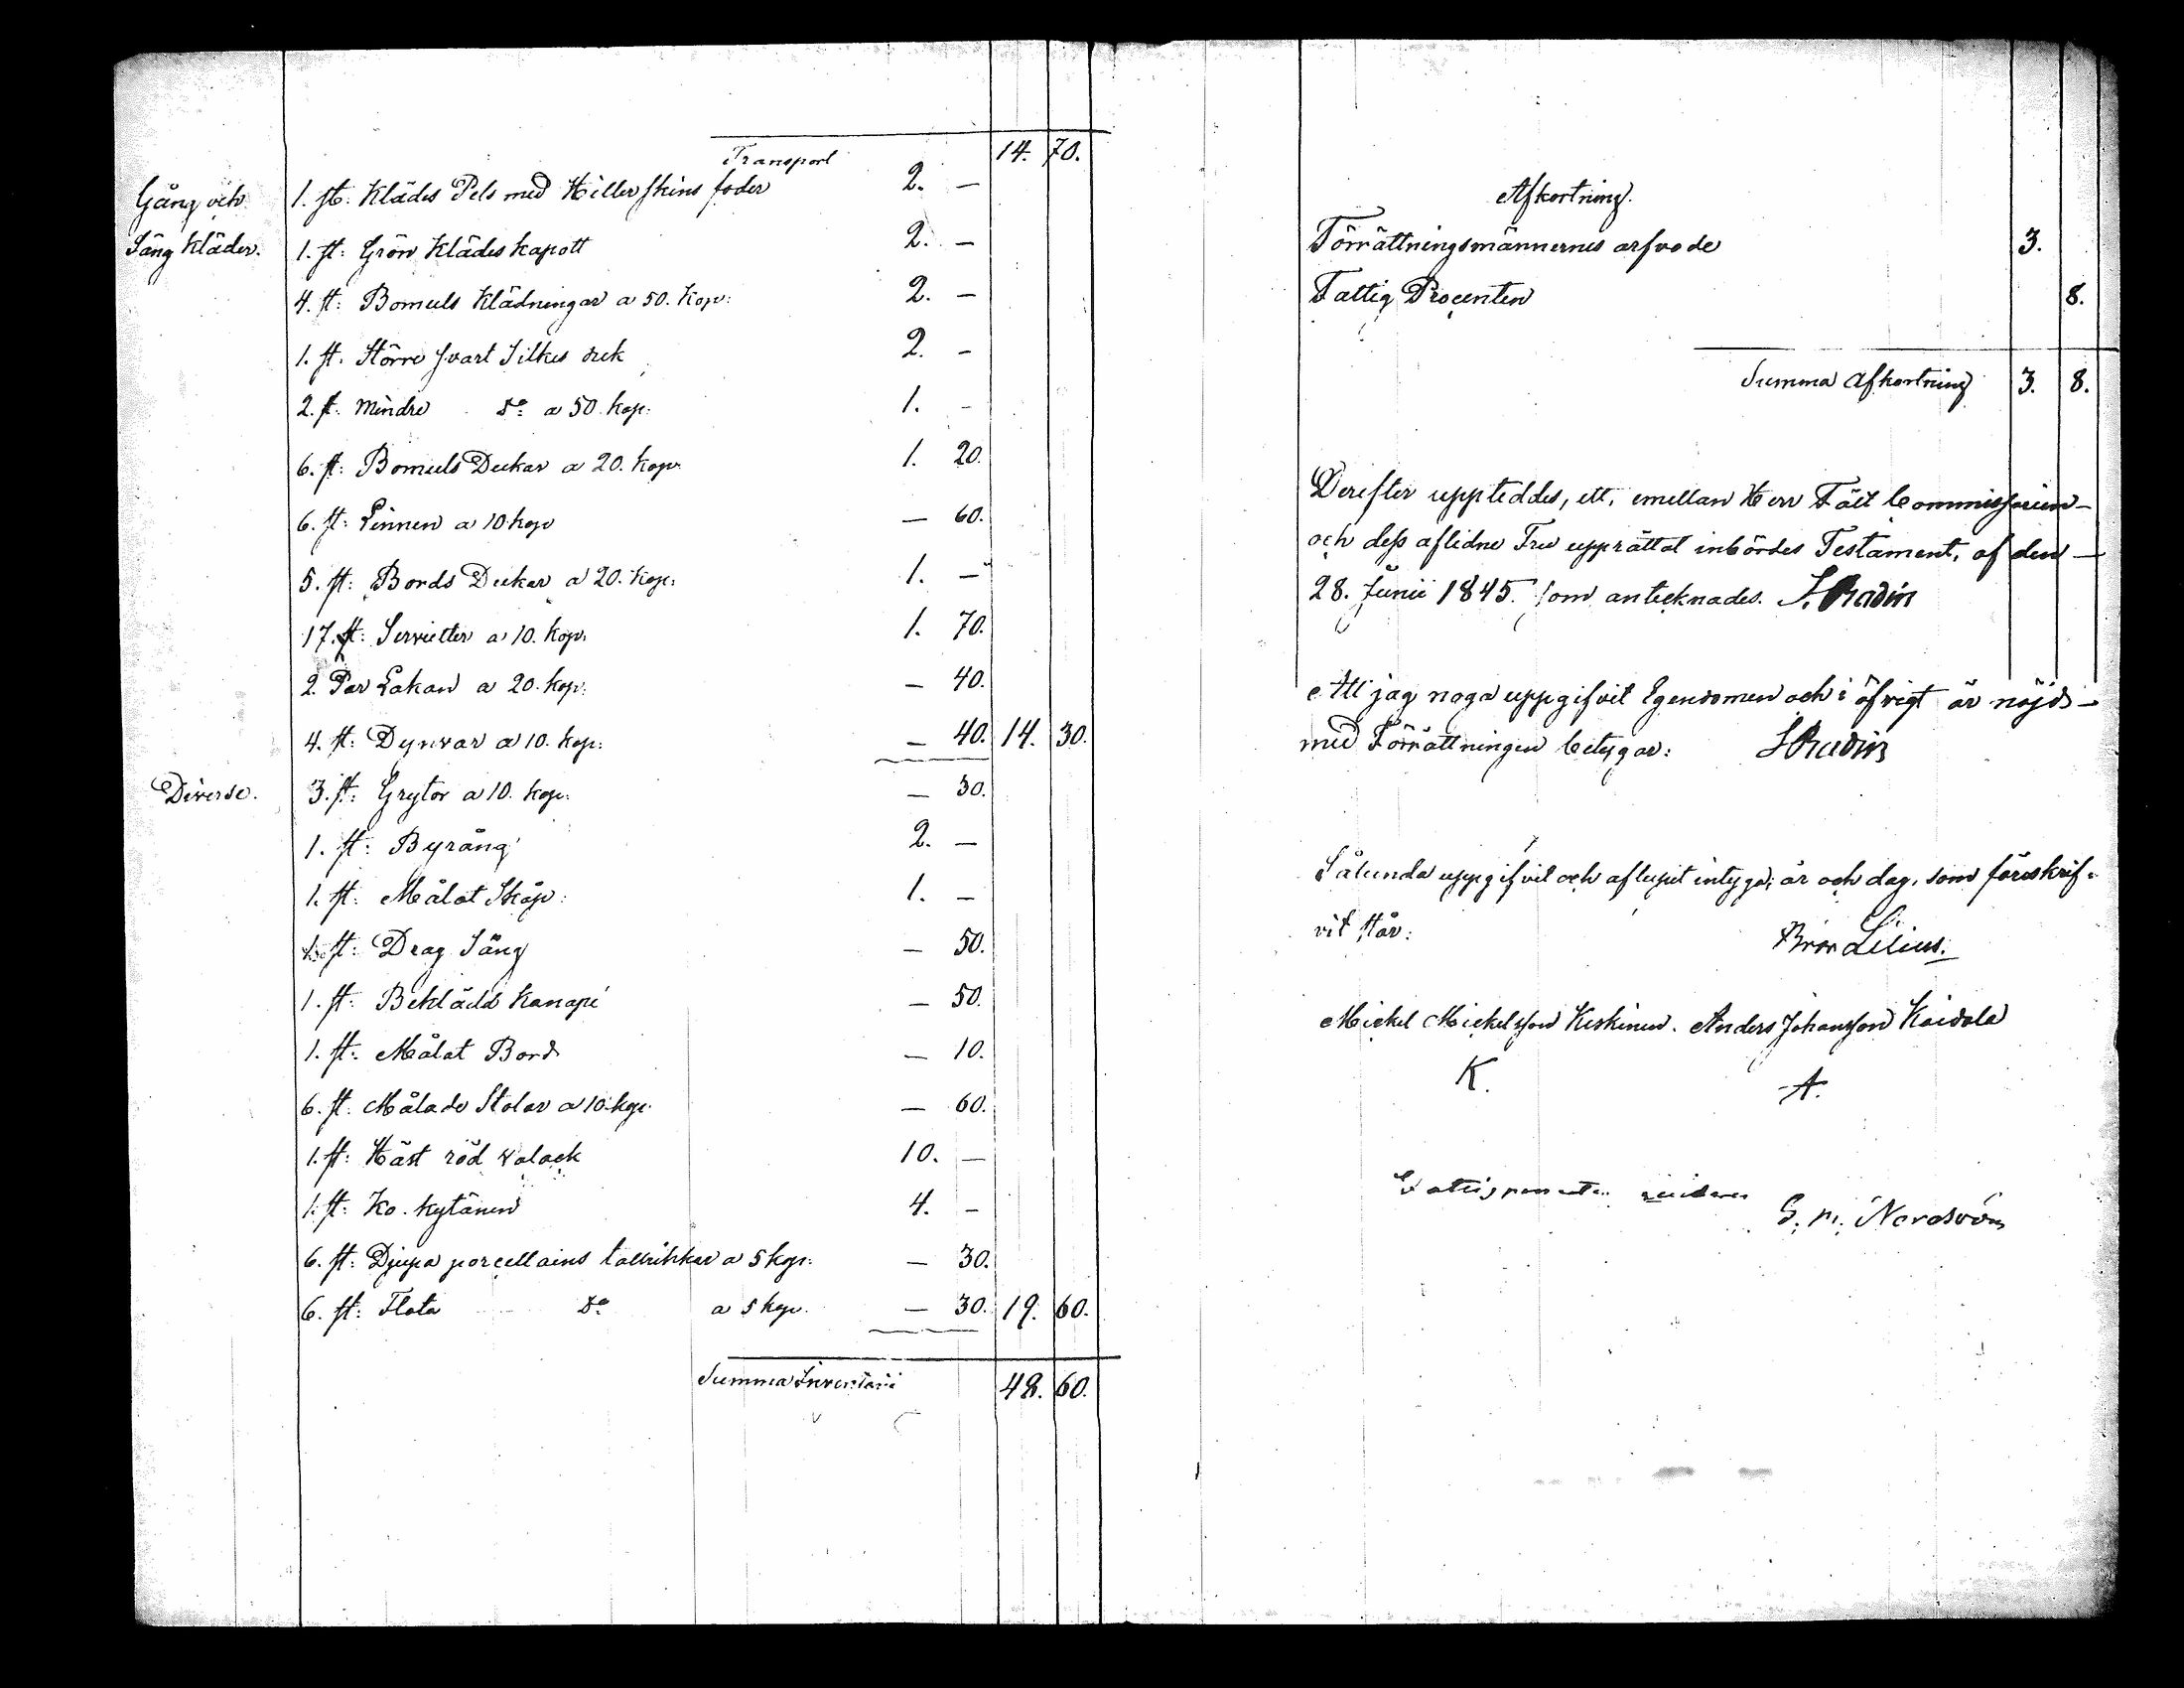 Transport 14. 70.
Gång och 1. st. Klädes Pels med Hillerskins foder 2. —
Säng Kläder. 1. st: Grön Klädes kapott 2. —
4. st: Bomuls Klädningar a 50. Kop: 2. —
1. st. Större svart Silkes duk 2. —
2. st. mindre do a 50 kop: 1. —
6. st: Bomuls Dukar a 20. kop. 1. 20.
6. st: Linnen a 10 kop — 60.
5. st: Bords Dukar a 20. kop: 1. —
17. st: Servietter a 10. kop. 1. 70.
2. Par Lakan a 20. kop: — 40.
4. st: Dynvar a 10. kop: — 40. 14. 30.
Diverse. 3. st: Grytor a 10. kop: — 30.
1. st: Byrång 2. —
1. st: Målat Skåp: 1. —
1. st: Drag Säng — 50.
1. st: Beklädd Kanapé — 50.
1. st: Målat Bord — 10.
6. st. Målade Stolar a 10. kop. — 60.
1. st: Häst röd valack 10. —
1. st: Ko. kytänen 4. —
6. st: Djupa porcellains tallrikkar a 5 kop: — 30.
6. st: Flata do a 5 kop. — 30. 19. 60.
Summa Inventarii 48. 60.
Afkortning.
Förrättningsmännernes arfvode 3.
Fattig Procenten 8.
Summa Afkortning 3. 8.
Derefter uppteddes, ett, emellan Herr Fält Commissarien —
och dess aflidne Fru upprättat inbördes Testament, af den —
28. Junii 1845. som antecknades. S. Radin
Att jag noga uppgifvit Egendomen och i öfrigt är nöjd —
med Förrättningen betygar: S Radin
Sålunda uppgifvit och aflupit intyga; år och dag, som föreskrif-
vit står: Bror Lilius.
Mickel Mickelsson Keskinen. Anders Johansson Kaidola
K. A.
G. M. Nordström